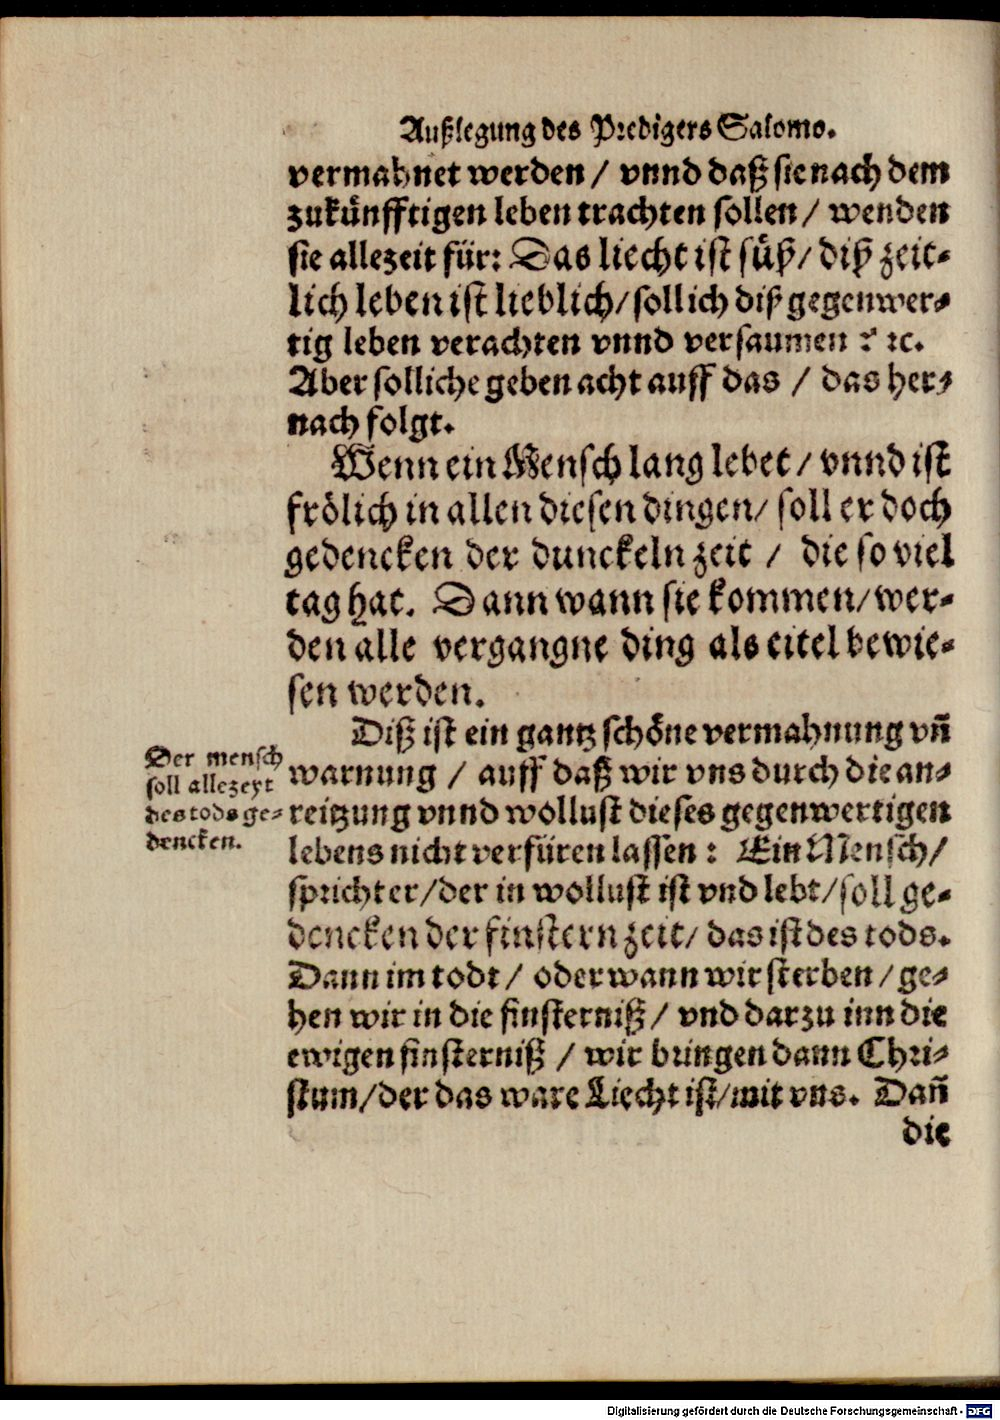 Außlegung des Predigers Salomo.
vermahnet werden / vnnd daß sie nach dem
zukünfftigen leben trachten sollen / wenden
sie allezeit für: Das liecht ist süß / diß zeit-
lich leben ist lieblich / soll ich diß gegenwer-
tig leben verachten vnnd versaumen ? ꝛc.
Aber solliche geben acht auff das / das her-
nach folgt.
Wenn ein Mensch lang lebet / vnnd ist
frölich in allen diesen dingen / soll er doch
gedencken der dunckeln zeit / die so viel
tag hat. Dann wann sie kommen / wer-
den alle vergangne ding als eitel bewie-
sen werden.
Diß ist ein gantz schöne vermahnung vñ
warnung / auff daß wir vns durch die an-
reitzung vnnd wollust dieses gegenwertigen
lebens nicht verfüren lassen : Ein Mensch /
spricht er / der in wollust ist vnd lebt / soll ge-
dencken der finstern zeit / das ist des tods.
Dann im todt / oder wann wir sterben / ge-
hen wir in die finsterniß / vnd darzu inn die
ewigen finsterniß / wir bringen dann Chri-
stum / der das ware Liecht ist / mit vns. Dañ
die
Der mensch
soll allezeyt
des tods ge-
dencken.
Digitalisierung gefördert durch die Deutsche Forschungsgemeinschaft - DFG